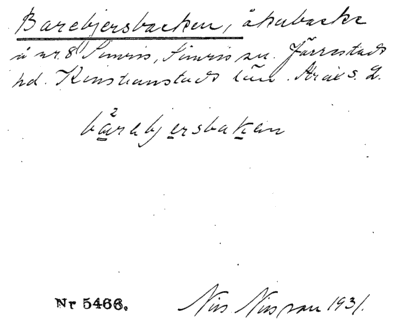 Barebjersbacken, åkabacke
å nr 8 Simris, Simris sn. Järrestads
hd. Kristianstads län. Ark s. 2.
bārebjersbakan
Nr 5466.
Nils Nilsson 1931.